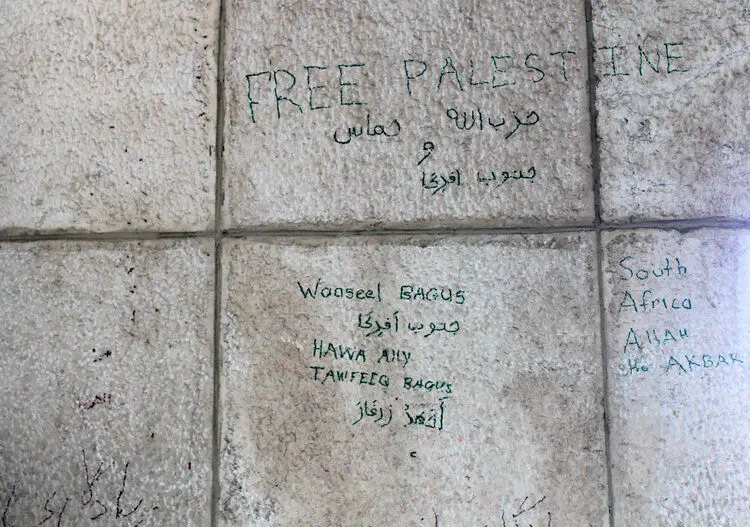 FREE PALESTINE
حزب الله حماس
و
جنوب افريكا
Waaseel BAGUS
جنوب أفريكا
HAWA Ally
TAWFEEQ BAGUS
South
Africa
Allah
Ho AKBAR
يادگاری